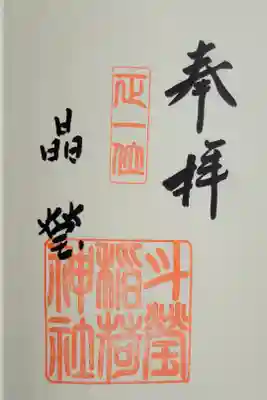 奉拝
正一位
晶瑩
斗瑩
稲荷
神社